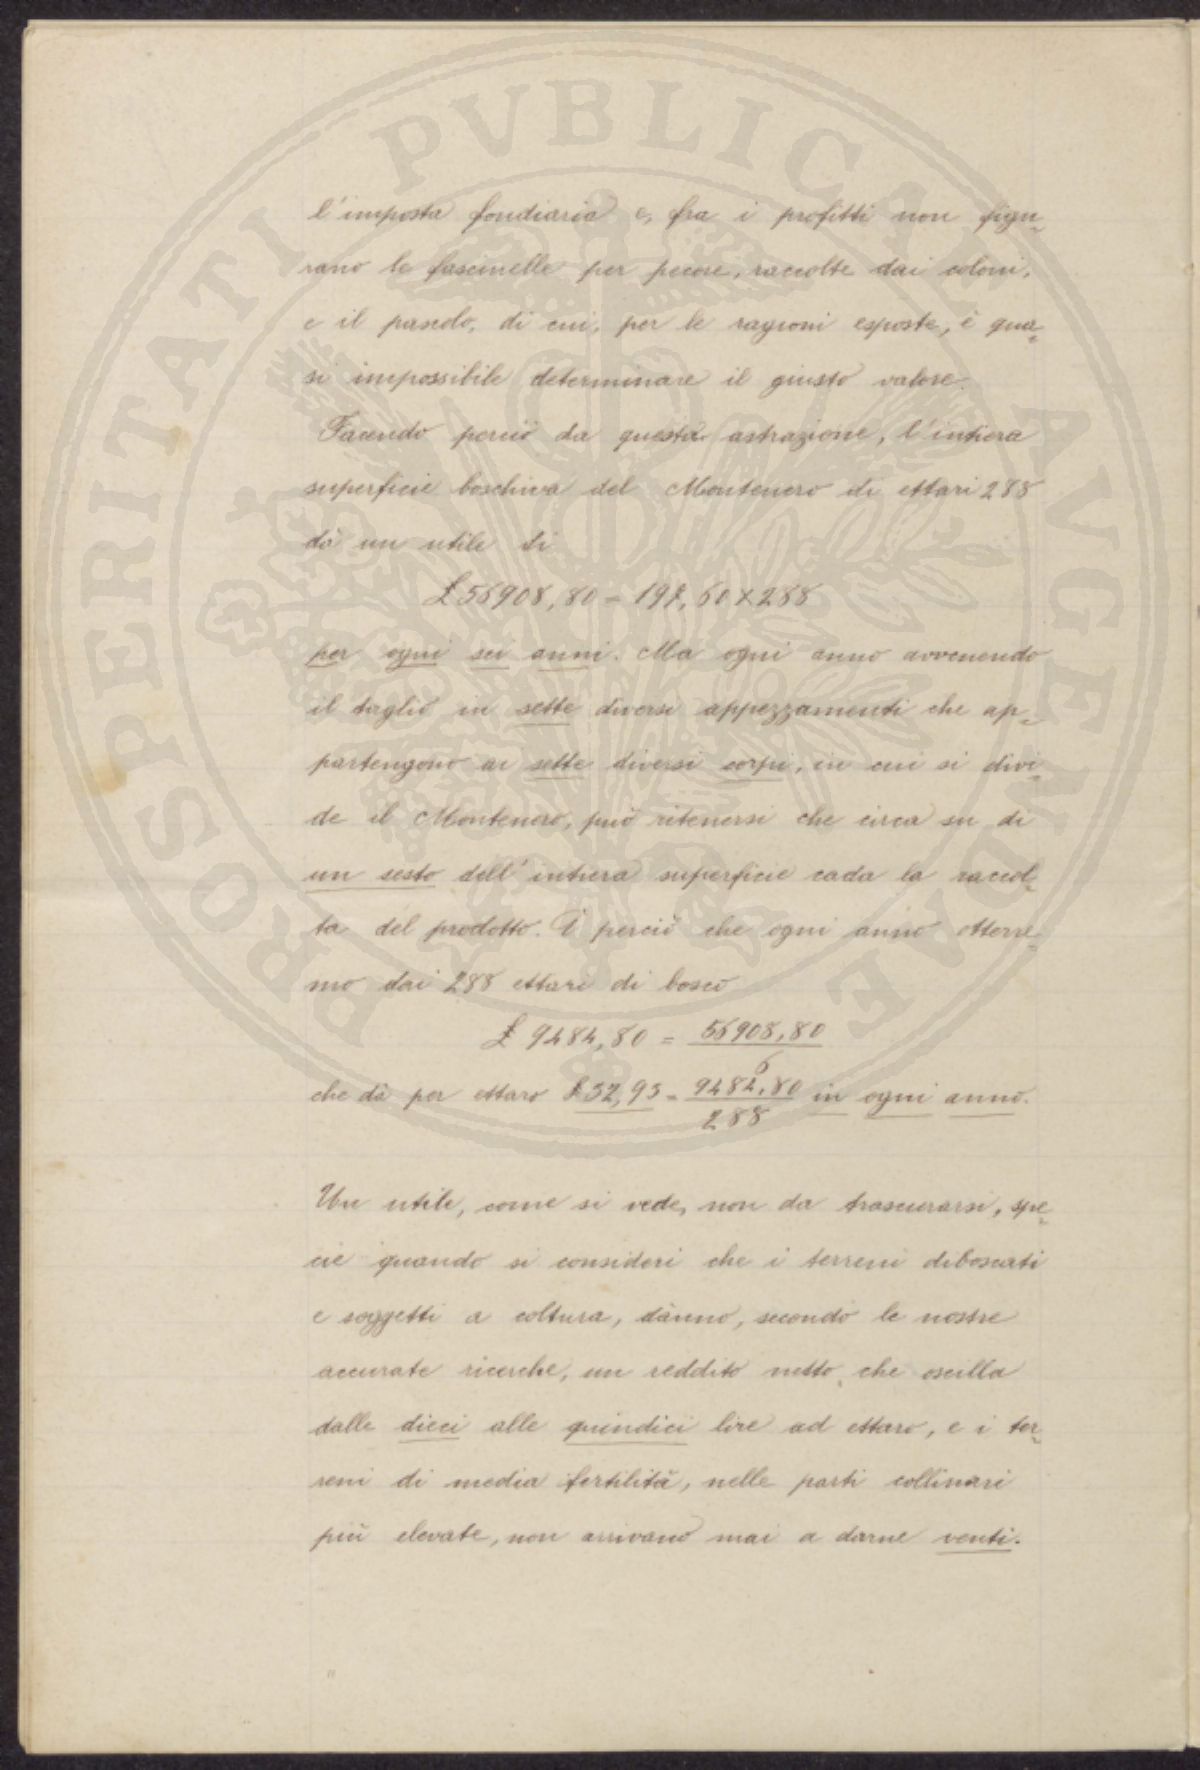 PROSPERITATI PVBLICAE AVGENDAE
l'imposta fondiaria e, fra i profitti non figu-
rano le fascinelle per pecore, raccolte dai coloni,
e il pascolo, di cui, per le ragioni esposte, è qua-
si impossibile determinare il giusto valore.
Facendo perciò da questa astrazione, l'intiera
superficie boschiva del Montenero di ettari 288
dà un utile di
£ 56908,80 = 197,60 x 288
per ogni sei anni. Ma ogni anno avvenendo
il taglio in sette diversi appezzamenti che ap-
partengono ai sette diversi corpi, in cui si divi-
de il Montenero, può ritenersi che circa su di
un sesto dell'intiera superficie cada la raccol-
ta del prodotto. È perciò che ogni anno otterre-
mo dai 288 ettari di bosco
£ 9484,80 = 56908,80
6
che dà per ettaro £ 32,93 = 9484,80 in ogni anno.
288
Un utile, come si vede, non da trascurarsi, spe-
cie quando si consideri che i terreni diboscati
e soggetti a coltura, dànno, secondo le nostre
accurate ricerche, un reddito netto, che oscilla
dalle dieci alle quindici lire ad ettaro, e i ter-
reni di media fertilità, nelle parti collinari
più elevate, non arrivano mai a darne venti.